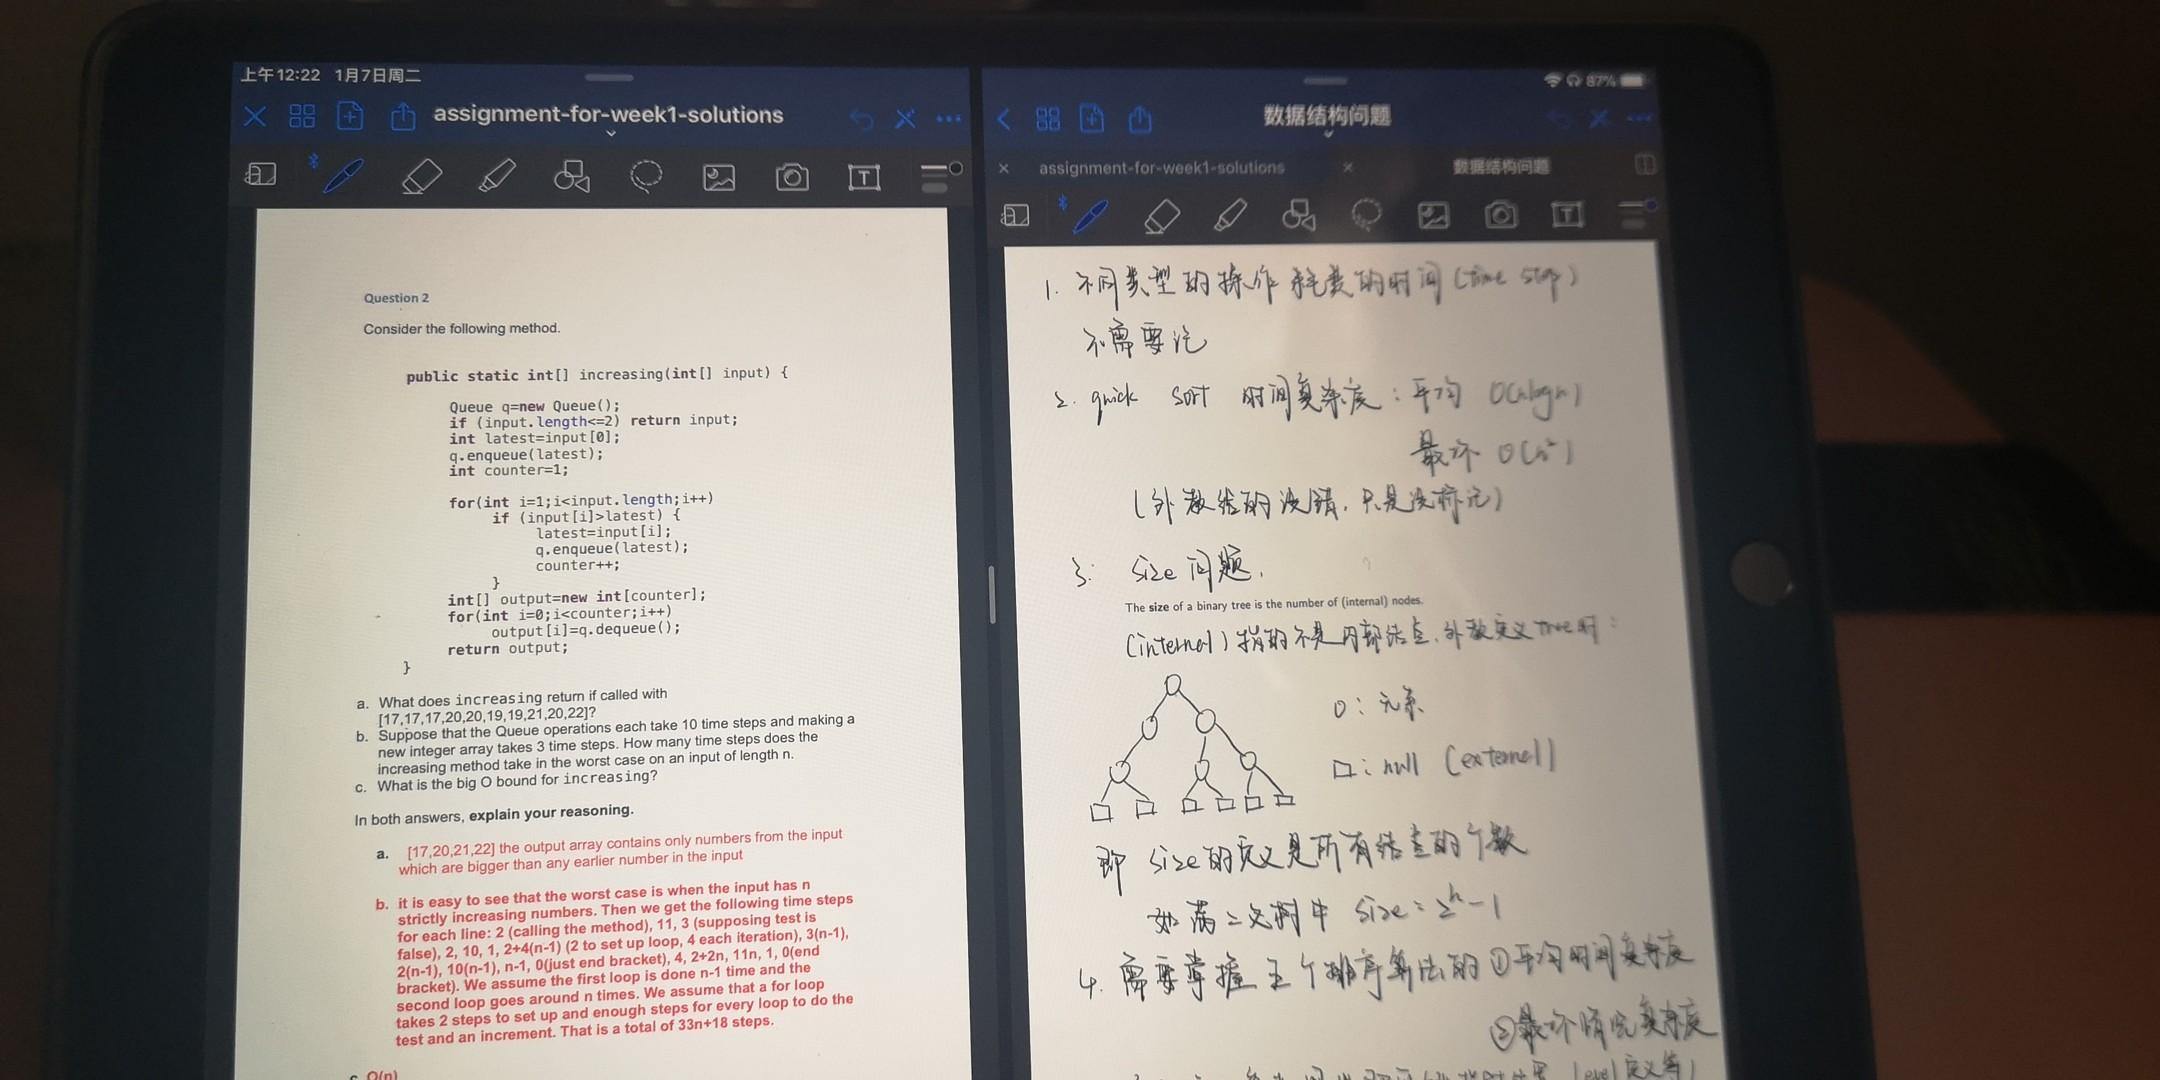 上午12:22 1月7日周二
assignment-for-week1-solutions
Question 2
Consider the following method.
public static int[] increasing(int[] input) {
Queue q=new Queue();
if (input.length<=2) return input;
int latest=input[0];
q.enqueue(latest);
int counter=1;
for(int i=1;i<input.length;i++)
if (input[i]>latest) {
latest=input[i];
q.enqueue(latest);
counter++;
}
int[] output=new int[counter];
for(int i=0;i<counter;i++)
output[i]=q.dequeue();
return output;
}
a. What does increasing return if called with
[17,17,17,20,20,19,19,21,20,22]?
b. Suppose that the Queue operations each take 10 time steps and making a
new integer array takes 3 time steps. How many time steps does the
increasing method take in the worst case on an input of length n.
c. What is the big O bound for increasing?
In both answers, explain your reasoning.
a. [17,20,21,22] the output array contains only numbers from the input
which are bigger than any earlier number in the input
b. it is easy to see that the worst case is when the input has n
strictly increasing numbers. Then we get the following time steps
for each line: 2 (calling the method), 11, 3 (supposing test is
false), 2, 10, 1, 2+4(n-1) (2 to set up loop, 4 each iteration), 3(n-1),
2(n-1), 10(n-1), n-1, 0(just end bracket), 4, 2+2n, 11n, 1, 0(end
bracket). We assume the first loop is done n-1 time and the
second loop goes around n times. We assume that a for loop
takes 2 steps to set up and enough steps for every loop to do the
test and an increment. That is a total of 33n+18 steps.
c. O(n)
87%
数据结构问题
assignment-for-week1-solutions 数据结构问题
1. 不同类型的操作耗费的时间 (time step)
不需要记
2. quick sort 时间复杂度: 平均 O(nlogn)
最坏 O(n²)
(外教给的没错, 只是没标记)
3. size 问题.
The size of a binary tree is the number of (internal) nodes.
(internal) 指的不是内部结点, 外教定义 Tree 时:
O: 元素
□: null (external)
即 size 的定义是所有结点的个数
如满二叉树中 size = 2ʰ-1
4. 需要掌握 个排序算法的 ①平均时间复杂度
②最坏情况复杂度
level 定义等)